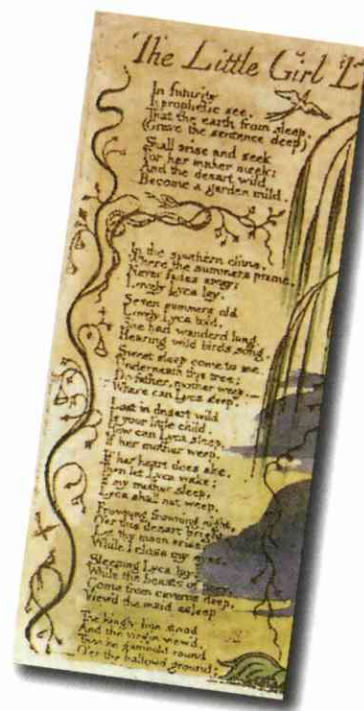 The Little Girl L
In futurity
I prophetic see,
That the earth from sleep,
(Grave the sentence deep)
Shall arise and seek
For her maker meek:
And the desart wild
Become a garden mild.
In the southern clime,
Where the summers prime,
Never fades away;
Lovely Lyca lay.
Seven summers old
Lovely Lyca told,
She had wanderd long,
Hearing wild birds song.
Sweet sleep come to me
Underneath this tree;
Do father, mother weep.—
Where can Lyca sleep.
Lost in desart wild
Is your little child.
How can Lyca sleep,
If her mother weep.
If her heart does ake,
Then let Lyca wake;
If my mother sleep,
Lyca shall not weep.
Frowning frowning night,
O'er this desart bright,
Let thy moon arise,
While I close my eyes.
Sleeping Lyca lay;
While the beasts of
Come from caverns deep,
View'd the maid asleep
The kingly lion stood
And the virgin view'd,
Then he gambold round
O'er the hallowd ground;